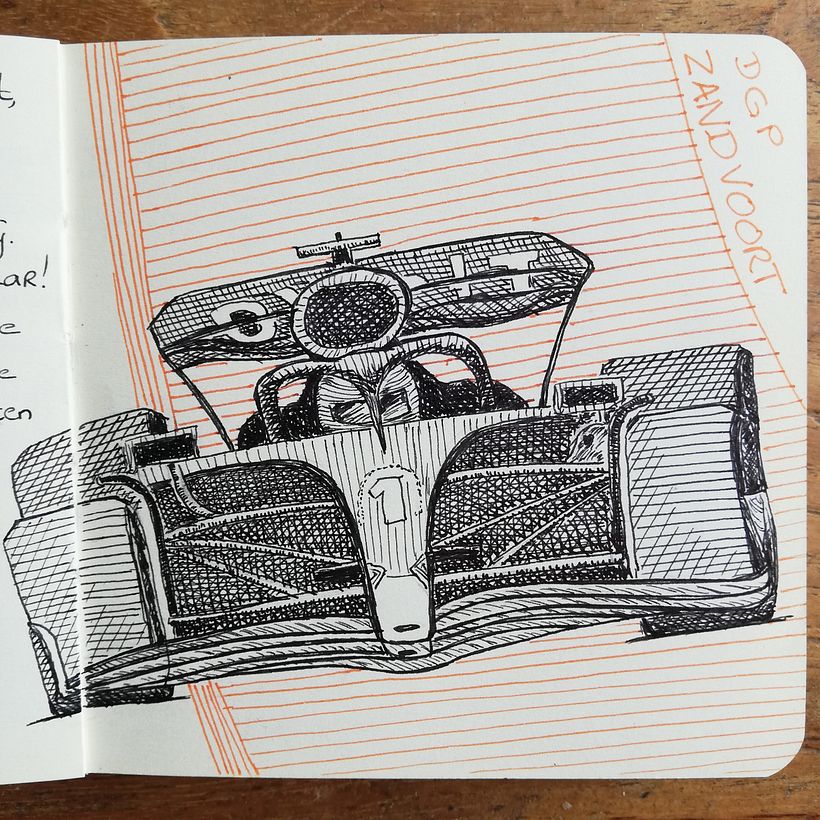 t,
j.
AR!
e
e
ten
DGP
ZANDVOORT
1